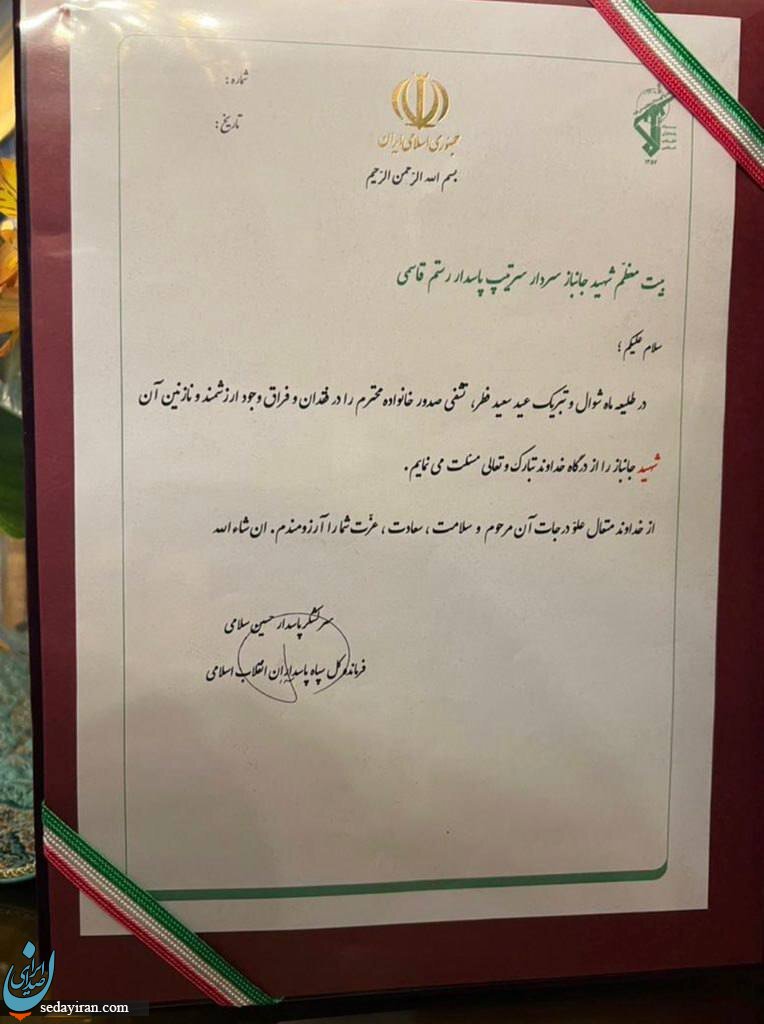 شماره:
تاریخ:
جمهوری اسلامی ایران
بسم الله الرحمن الرحیم
۱۳۵۷
بیت معظّم شهید جانباز سردار سرتیپ پاسدار رستم قاسمی
سلام علیکم؛
در طلیعه ماه شوال و تبریک عید سعید فطر، تشفی صدور خانواده محترم را در فقدان و فراق وجود ارزشمند و نازنین آن
شهید جانباز را از درگاه خداوند تبارک و تعالی مسئلت می نمایم.
از خداوند متعال علوّ درجات آن مرحوم و سلامت، سعادت، عزّت شما را آرزومندم. ان شاء الله
سرلشکر پاسدار حسین سلامی
فرمانده کل سپاه پاسداران انقلاب اسلامی
صدای ایران
sedayiran.com